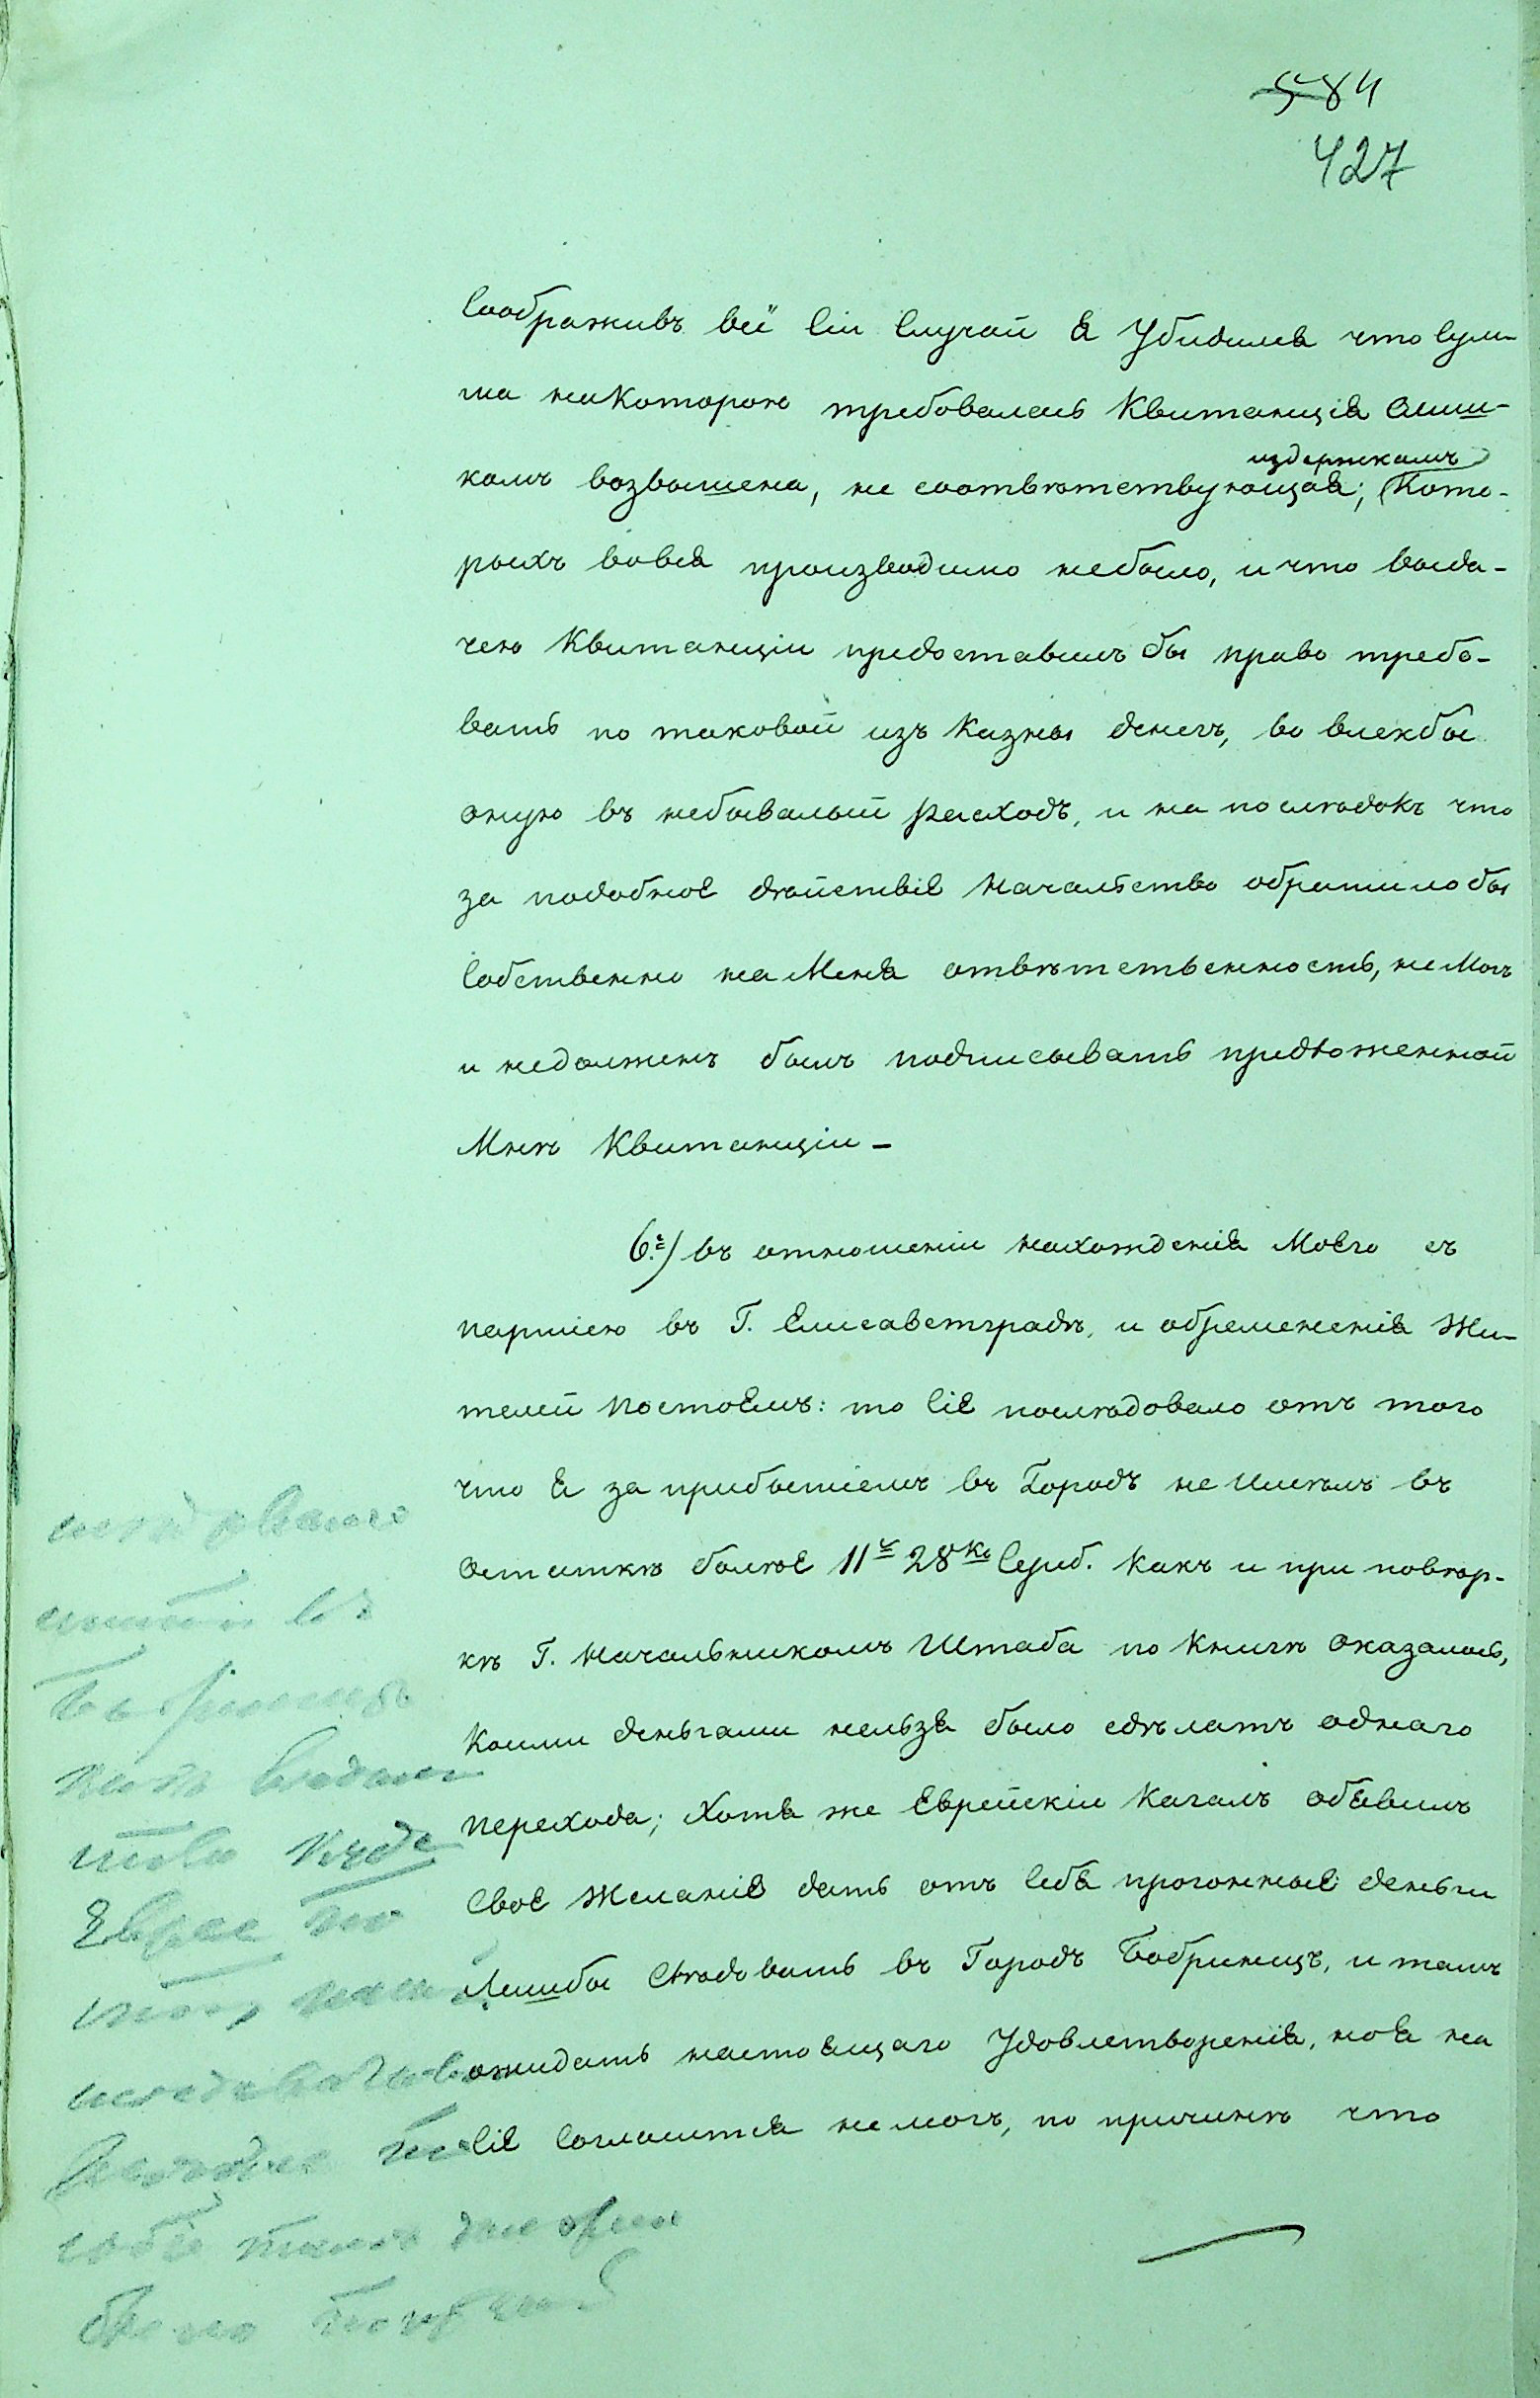 584
427
Сообразивъ всѣ сіи Случаи я Убидился что сум-
ма на Которою требовалась Квитанція слиш-
комъ возвышена, не соотвѣтствующая; Кото-
издержкамъ
рыхъ вовся производимо небыло, и что выда-
чею Квитанціи предоставилъ бы право требо-
вать по таковой изъ Казны денегъ, во влекбы
оную въ небывалый расходъ, и на послѣдокъ что
за подобное дѣйствіе Начальство обратило бы
Собственно на Меня отвѣтственность, не Могъ
и недолженъ былъ подписывать предложенной
Мнѣ Квитанціи –
6.е) въ отношеніи нахожденія Моего съ
партіею въ Г. Елисаветградѣ, и обремененія Жи-
телей постоемъ: то Сіе послѣдовало отъ того
что я за прибытіемъ въ Городъ не Имѣлъ въ
Остаткѣ болѣе 11 ч 28 ко Сереб. Какъ и при повѣр-
кѣ Г. Начальникомъ Штаба по Книгѣ оказалось,
Коими деньгами нельзя было сдѣлать одного
перехода; Хотя же Еврейскіи Кагалъ объявилъ
Свое Желаніе дать отъ Себя прогонные деньги
Лишбы Слѣдовать въ Городъ Бобринецъ, и тамъ
ожидать настоящаго Удовлетворенія, но я на
Сіе Согласится не могъ, по причинѣ что
куда
Евреи по
было